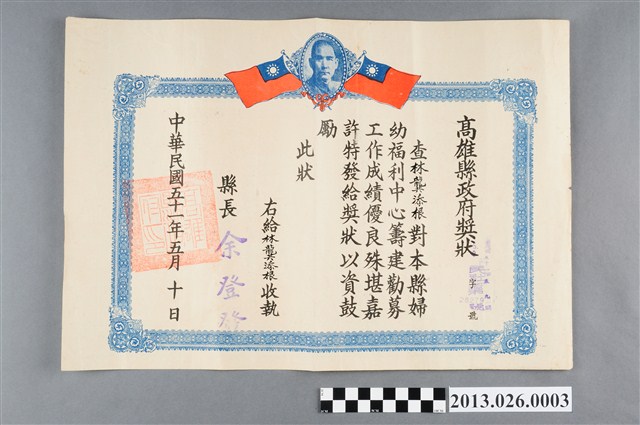 高雄縣政府獎狀
字
號
查林龔添根對本縣婦
幼福利中心籌建勸募
工作成績優良殊堪嘉
許特發給獎狀以資鼓
勵
此狀
右給林龔添根收執
縣長
余登發
中華民國五十一年五月十日
2013.026.0003